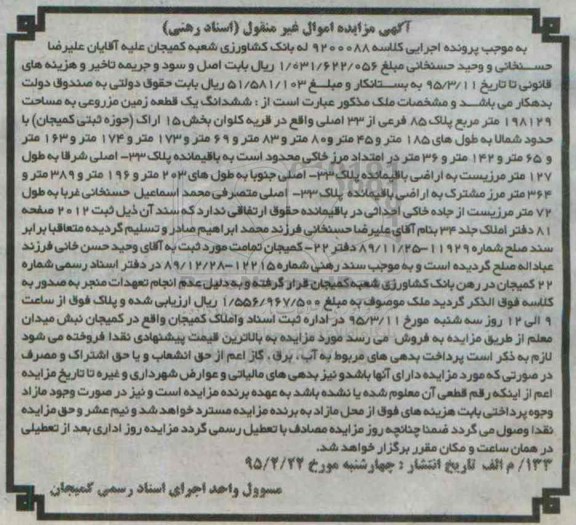 آگهی مزایده اموال غیر منقول (اسناد رهنی)
به موجب پرونده اجرایی کلاسه ۹۲۰۰۰۸۸ له بانک کشاورزی شعبه کمیجان علیه آقایان علیرضا
حسنخانی و وحید حسنخانی مبلغ ۱/۰۳۱/۶۲۲/۰۵۶ ریال بابت اصل و سود و جریمه تاخیر و هزینه های
قانونی تا تاریخ ۹۵/۳/۱۱ به بستانکار و مبلغ ۵۱/۵۸۱/۱۰۳ ریال بابت حقوق دولتی به صندوق دولت
بدهکار می باشد و مشخصات ملک مذکور عبارت است از : ششدانگ یک قطعه زمین مزروعی به مساحت
۱۹۸۱۲۹ متر مربع پلاک ۸۵ فرعی از ۳۳ اصلی واقع در قریه کلوان بخش ۱۵ اراک (حوزه ثبتی کمیجان) با
حدود شمالا به طول های ۱۸۵ متر و ۴۵ متر و ۸۰ متر و ۸۳ متر و ۶۹ متر و ۱۷۳ متر و ۱۷۴ متر و ۱۶۳ متر
و ۶۵ متر و ۱۴۲ متر و ۳۶ متر در امتداد مرز خاکی محدود است به باقیمانده پلاک ۳۳- اصلی شرقا به طول
۱۲۷ متر مرزیست به اراضی باقیمانده پلاک ۳۳- اصلی جنوبا به طول های ۲۰۳ متر و ۱۹۶ متر و ۳۸۹ متر و
۳۶۴ متر مرز مشترک به اراضی باقیمانده پلاک ۳۳- اصلی متصرفی محمد اسماعیل حسنخانی غربا به طول
۷۲ متر مرزیست از جاده خاکی احداثی در باقیمانده حقوق ارتفاقی ندارد که سند آن ذیل ثبت ۲۰۱۲ صفحه
۸۱ دفتر املاک جلد ۳۴ بنام آقای علیرضا حسنخانی فرزند محمد ابراهیم صادر و تسلیم گردیده متعاقبا برابر
سند صلح شماره ۱۱۹۲۹-۸۹/۱۱/۲۵ دفتر ۲۲- کمیجان تمامت مورد ثبت به آقای وحید حسن خانی فرزند
عبداله صلح گردیده است و به موجب سند رهنی شماره ۱۲۲۱۵-۸۹/۱۲/۲۸ در دفتر اسناد رسمی شماره
۲۲ کمیجان در رهن بانک کشاورزی شعبه کمیجان قرار گرفته و به دلیل عدم انجام تعهدات منجر به صدور به
کلاسه فوق الذکر گردید ملک موصوف به مبلغ ۱/۵۵۶/۹۶۷/۵۰۰ ریال ارزیابی شده و پلاک فوق از ساعت
۹ الی ۱۲ روز سه شنبه مورخ ۹۵/۳/۱۱ در اداره ثبت اسناد واملاک کمیجان واقع در کمیجان نبش میدان
معلم از طریق مزایده به فروش می رسد مورد مزایده به بالاترین قیمت پیشنهادی نقدا فروخته می شود
لازم به ذکر است پرداخت بدهی های مربوط به آب، برق، گاز اعم از حق انشعاب و یا حق اشتراک و مصرف
در صورتی که مورد مزایده دارای آنها باشدو نیز بدهی های مالیاتی و عوارض شهرداری و غیره تا تاریخ مزایده
اعم از اینکه رقم قطعی آن معلوم شده یا نشده باشد به عهده برنده مزایده است و نیز در صورت وجود مازاد
وجوه پرداختی بابت هزینه های فوق از محل مازاد به برنده مزایده مسترد خواهد شد و نیم عشر و حق مزایده
نقدا وصول می گردد ضمنا چنانچه روز مزایده مصادف با تعطیل رسمی گردد مزایده روز اداری بعد از تعطیلی
در همان ساعت و مکان مقرر برگزار خواهد شد.
۱۳۳/ م الف تاریخ انتشار : چهارشنبه مورخ ۹۵/۲/۲۲
مسوول واحد اجرای اسناد رسمی کمیجان